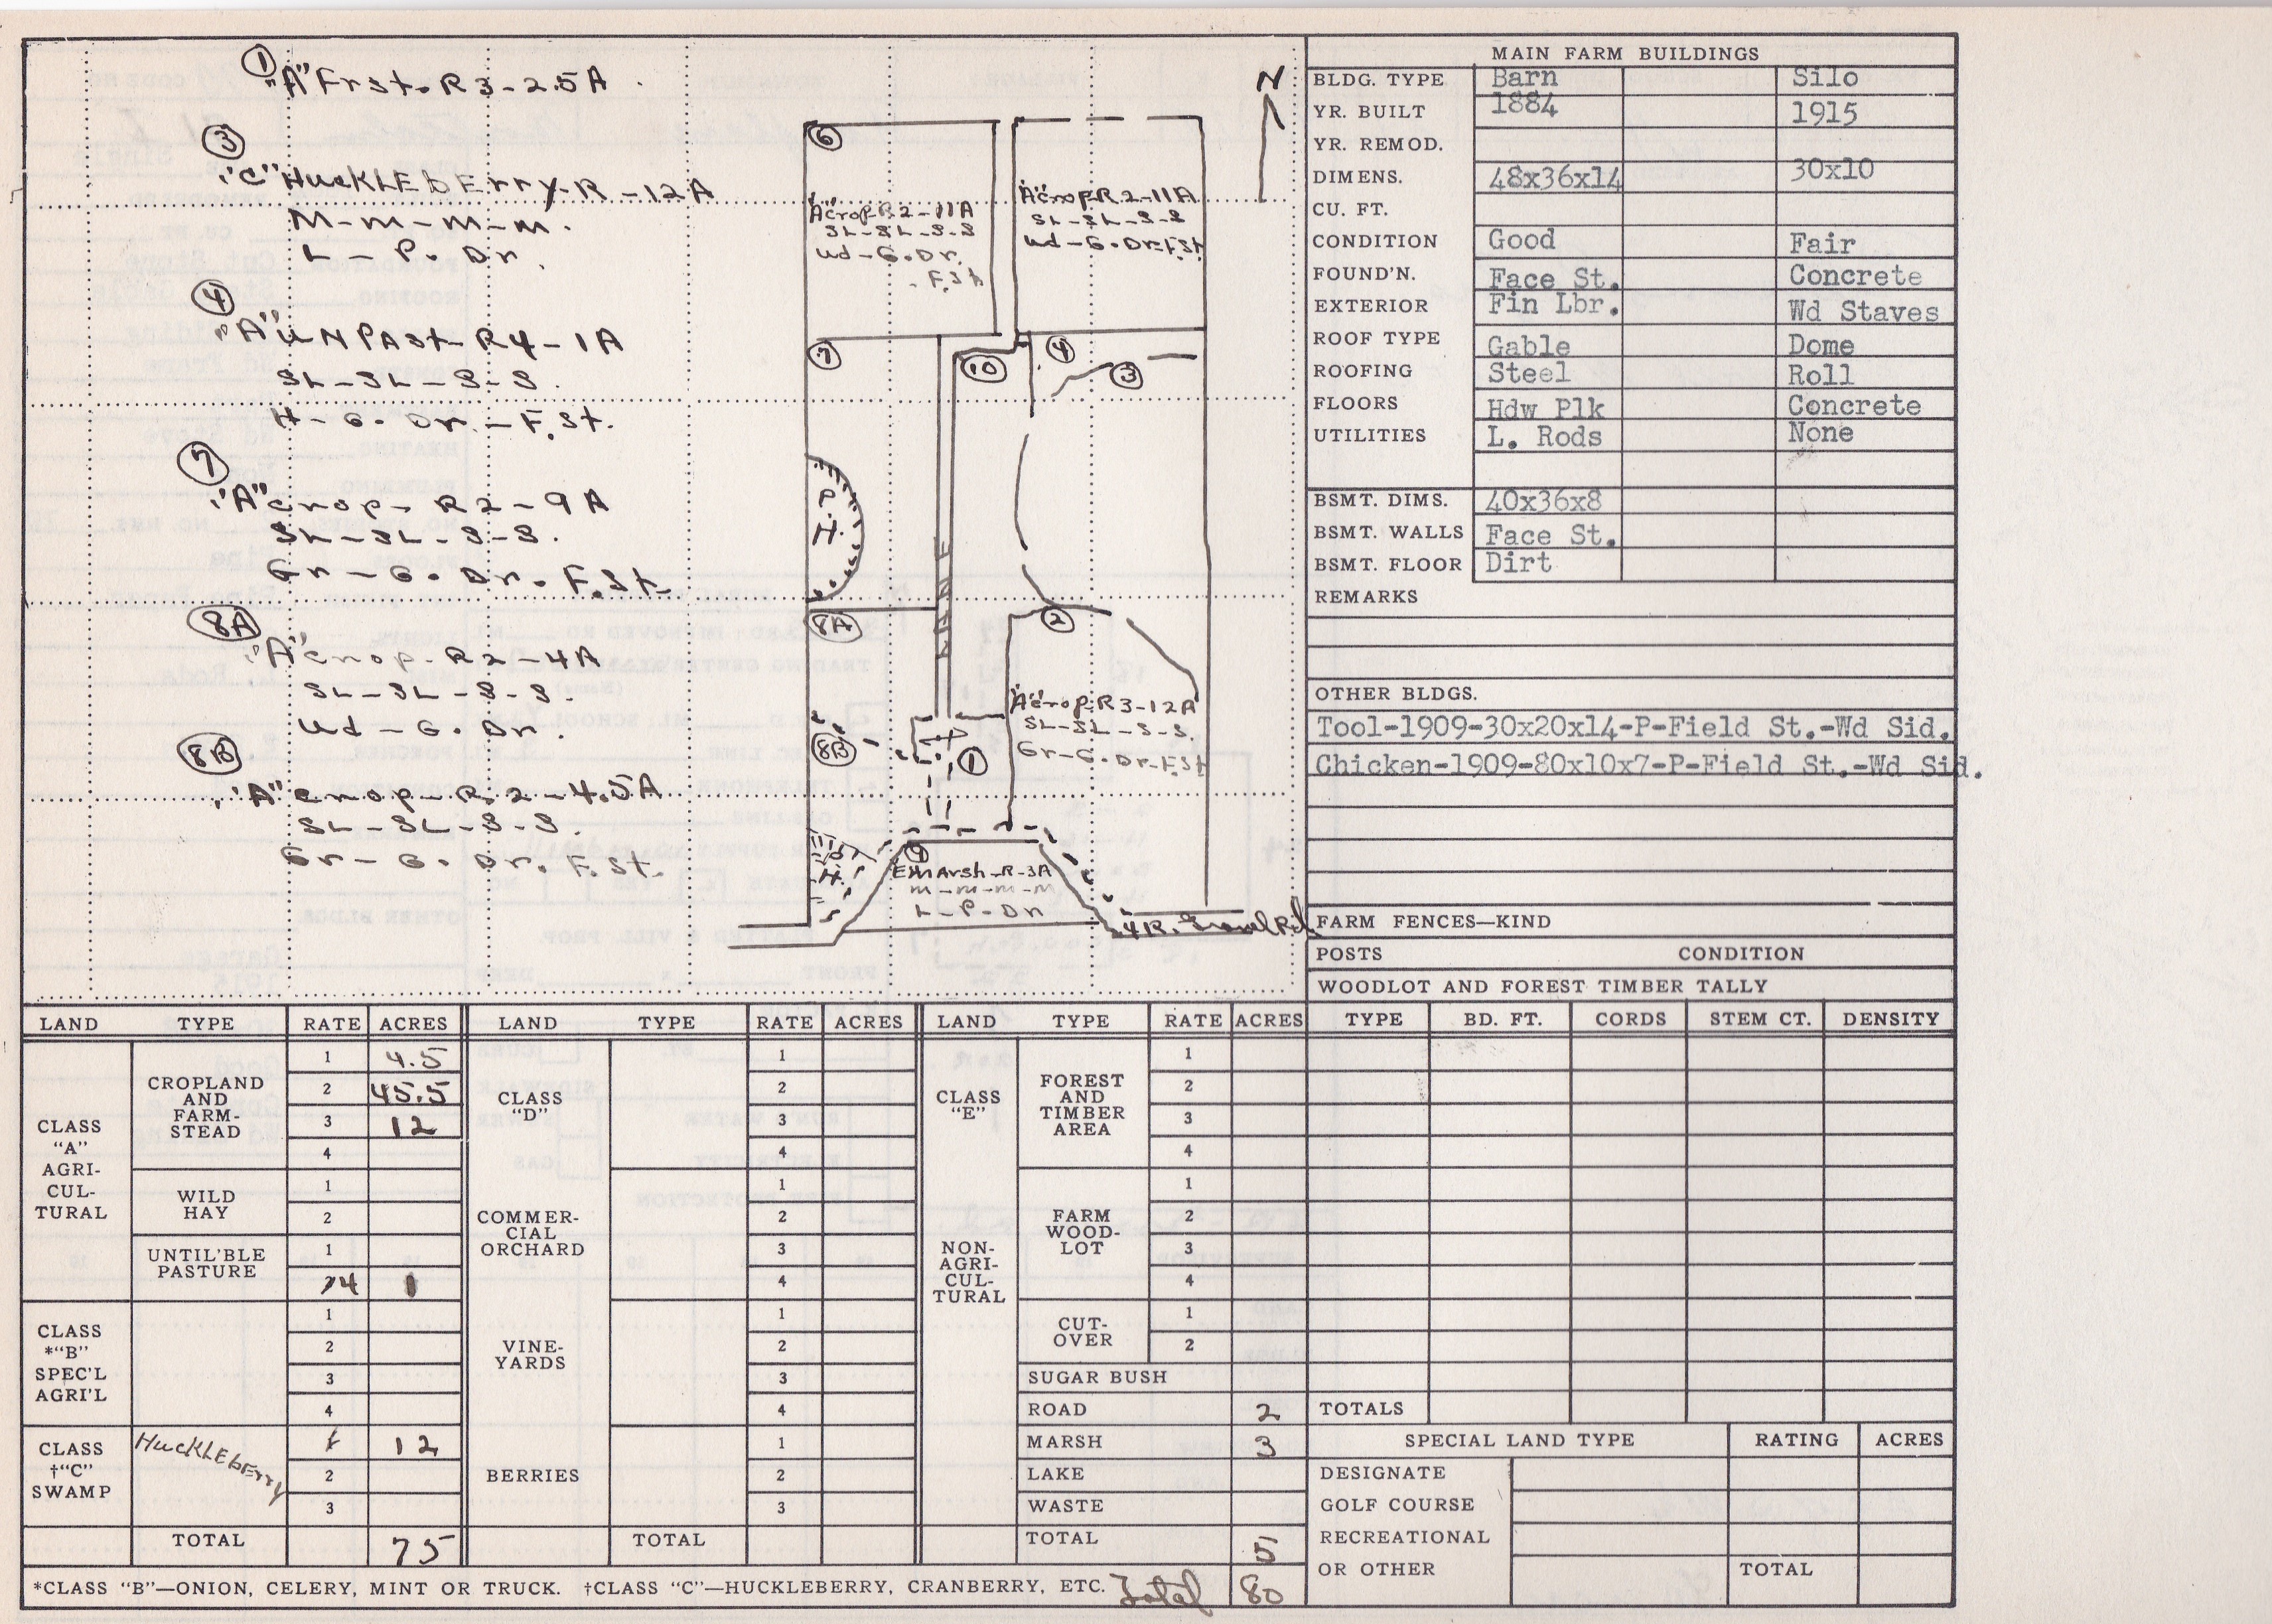 ①
"A" Frst. R3-2.5A
③
"C" HuckLEbErry-R-12A
M-m-m-m.
L-P.Dr.
④
"A" UN PAst-R4-1A
SL-SL-S-S.
H-G.Dr.-F.St.
⑦
"A" crop-R2-9A
SL-SL-S-S.
Gr-G.Dr.F.St.
8A
"A" crop-R2-4A
SL-SL-S-S.
Ud-G.Dr.
8B
"A" crop-R.2-4.5A
SL-SL-S-S.
Gr-G.Dr.F.St.
N
⑥
"A" crop R2-11A
SL-SL-S-S
Ud-G.Dr.
F.St
"A" crop R2-11A
SL-SL-S-S
Ud-G.Dr-F.St
⑦
⑩
④
③
P.
H.
LANE
8A
②
8B
①
"A" crop R3-12A
SL-SL-S-S.
Gr-G.Dr-F.St
H.
⑨
E MArsh-R-3A
m-m-m-m
L-P-Dr
4R. Gravel Rd.
MAIN FARM BUILDINGS
BLDG. TYPE Barn Silo
YR. BUILT 1884 1915
YR. REMOD.
DIMENS. 48x36x14 30x10
CU. FT.
CONDITION Good Fair
FOUND'N. Face St. Concrete
EXTERIOR Fin Lbr. Wd Staves
ROOF TYPE Gable Dome
ROOFING Steel Roll
FLOORS Hdw Plk Concrete
UTILITIES L. Rods None
BSMT. DIMS. 40x36x8
BSMT. WALLS Face St.
BSMT. FLOOR Dirt
REMARKS
OTHER BLDGS.
Tool-1909-30x20x14-P-Field St.-Wd Sid.
Chicken-1909-80x10x7-P-Field St.-Wd Sid.
FARM FENCES—KIND
POSTS CONDITION
WOODLOT AND FOREST TIMBER TALLY
TYPE BD. FT. CORDS STEM CT. DENSITY
TOTALS
SPECIAL LAND TYPE RATING ACRES
DESIGNATE
GOLF COURSE
RECREATIONAL
OR OTHER TOTAL
LAND TYPE RATE ACRES
CLASS
"A"
AGRI-
CUL-
TURAL
CROPLAND
AND
FARM-
STEAD
1 4.5
2 45.5
3 12
4
WILD
HAY
1
2
UNTIL'BLE
PASTURE
1
4 1
CLASS
*"B"
SPEC'L
AGRI'L
1
2
3
4
CLASS
†"C"
SWAMP
HuckLEbErry
1 12
2
3
TOTAL 75
LAND TYPE RATE ACRES
CLASS
"D"
COMMER-
CIAL
ORCHARD
1
2
3
4
1
2
3
4
VINE-
YARDS
1
2
3
4
BERRIES
1
2
3
TOTAL
LAND TYPE RATE ACRES
CLASS
"E"
NON-
AGRI-
CUL-
TURAL
FOREST
AND
TIMBER
AREA
1
2
3
4
FARM
WOOD-
LOT
1
2
3
4
CUT-
OVER
1
2
SUGAR BUSH
ROAD 2
MARSH 3
LAKE
WASTE
TOTAL 5
*CLASS "B"—ONION, CELERY, MINT OR TRUCK. †CLASS "C"—HUCKLEBERRY, CRANBERRY, ETC. Total 80